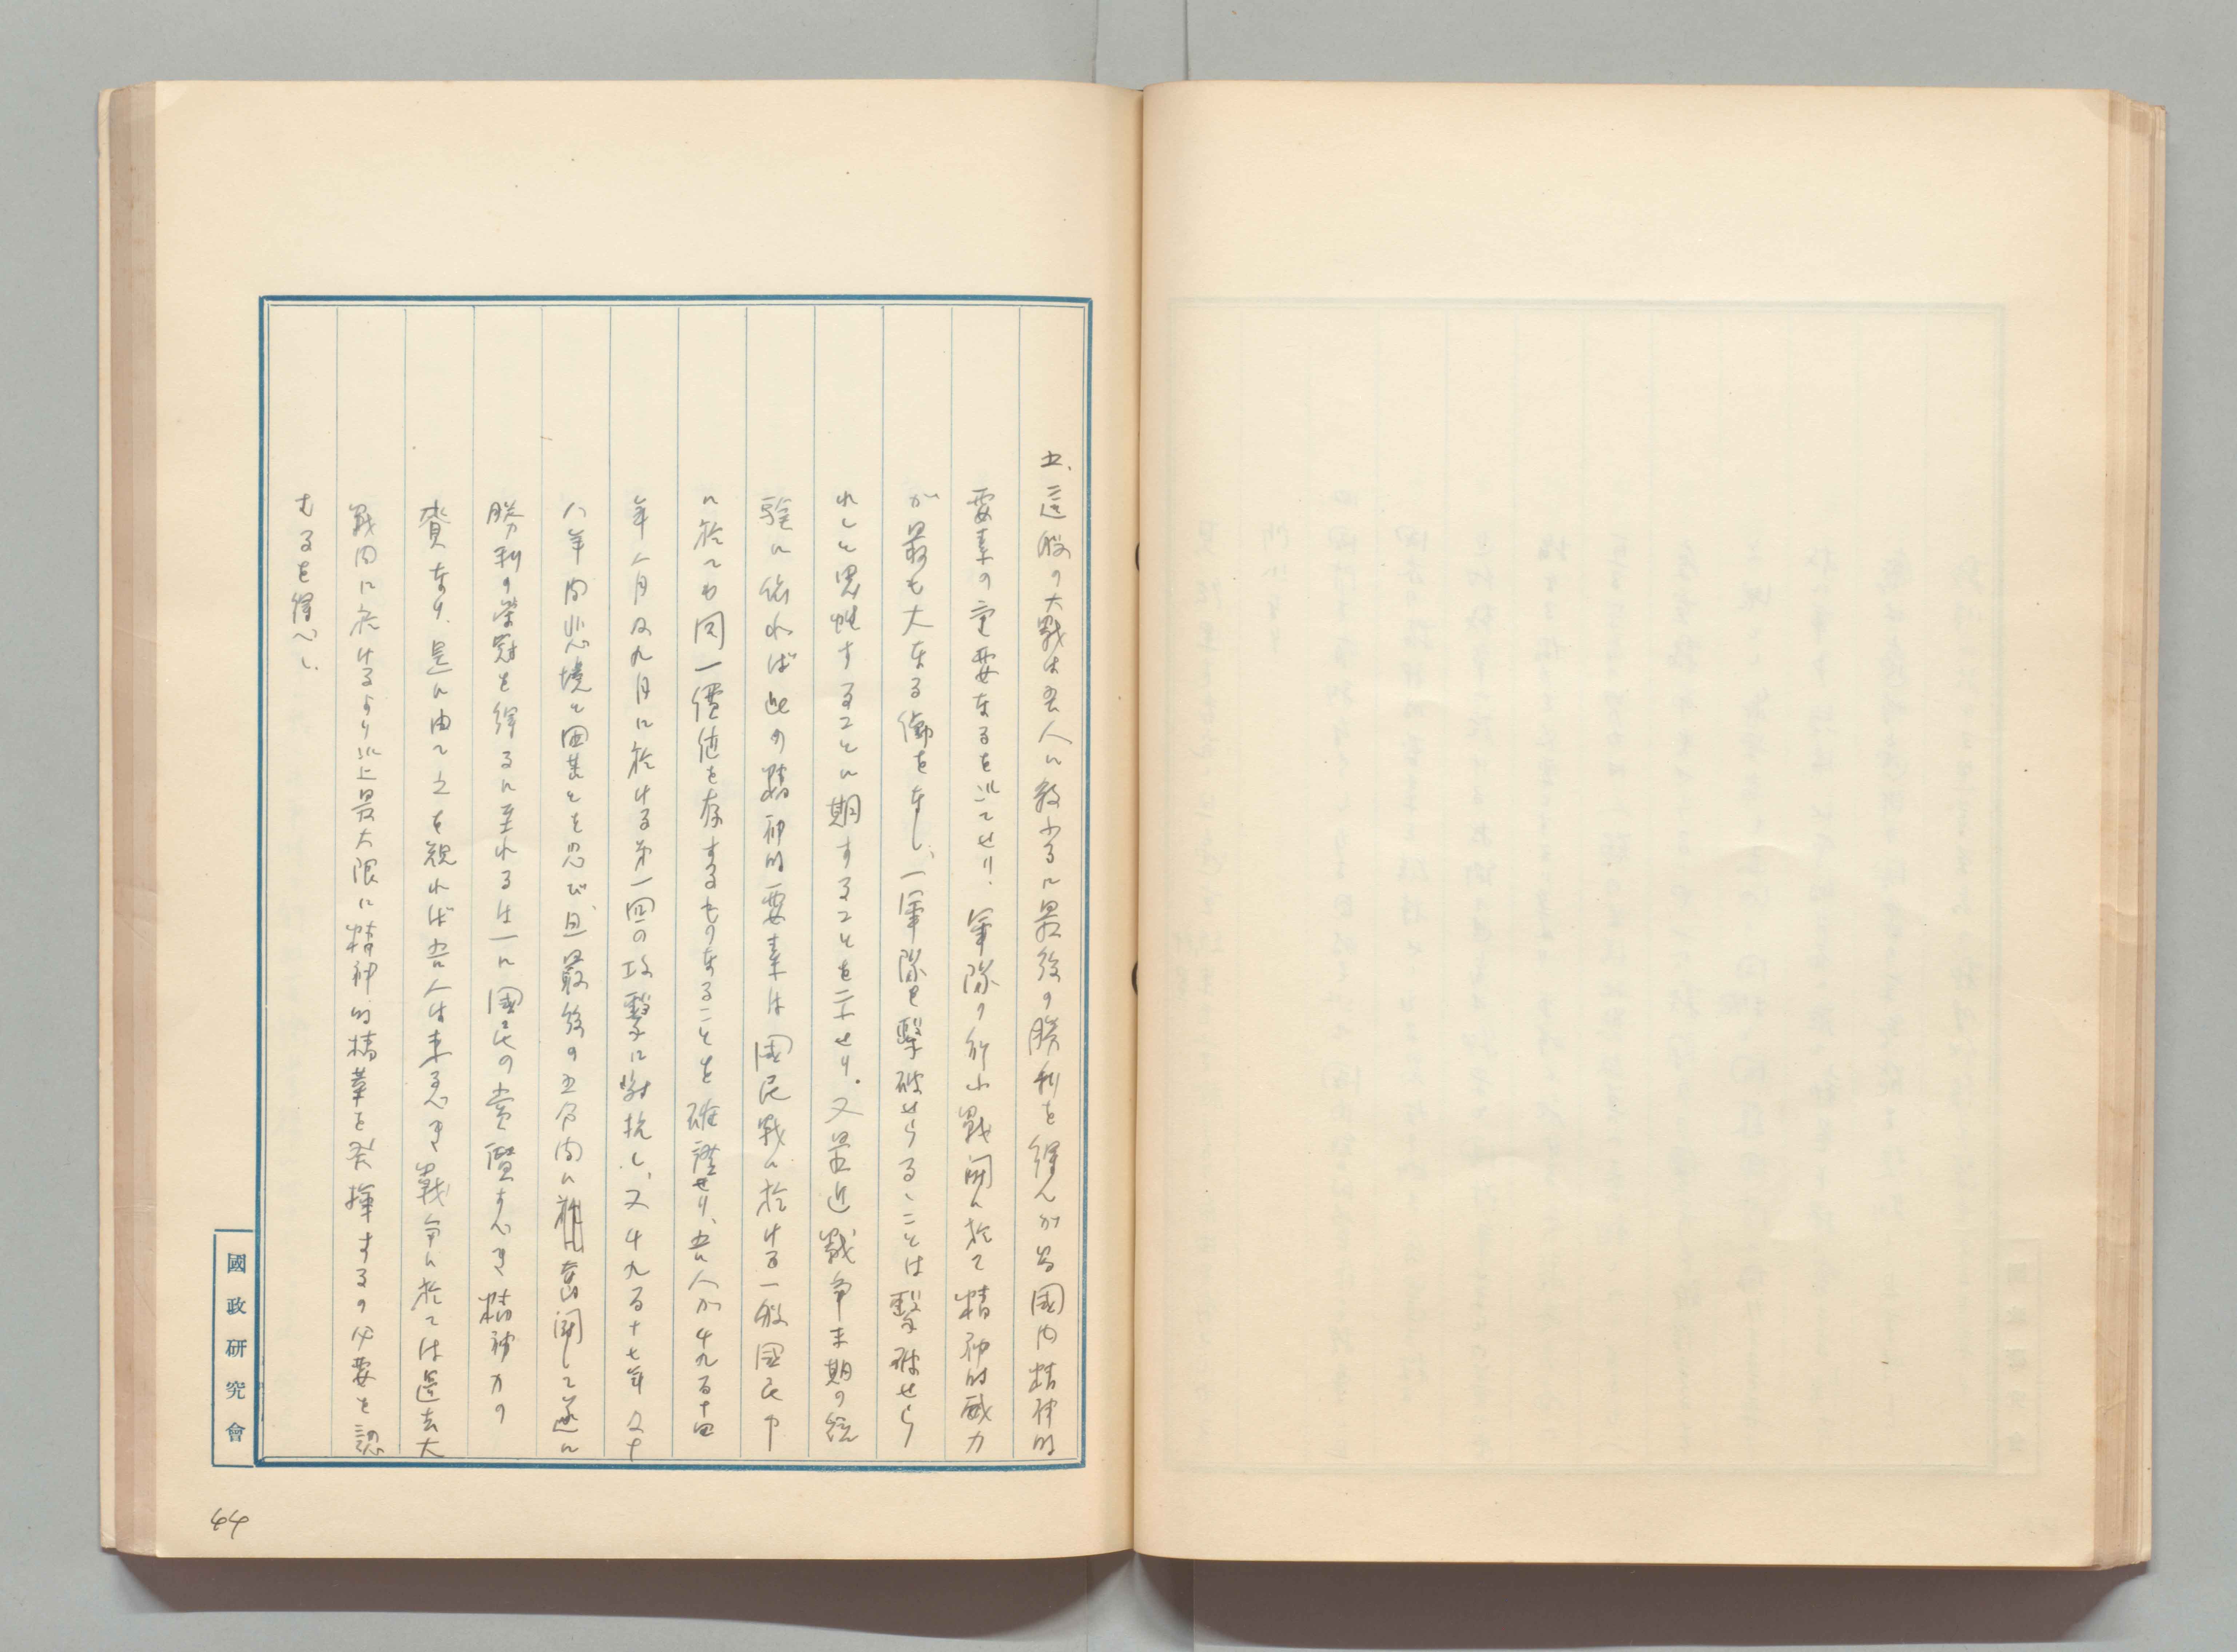 五、這般の大戰は吾人に教ふるに最後の勝利を得んが為國内精神的
要素の重要なるを以てせり、軍隊の行ふ戰鬪に於て精神的威力
が最も大なる働をなし、一軍隊を擊破せらるゝことは擊破せら
れしと思惟することに期することを示せり。又最近戰争末期の経
驗に依れば此の精神的要素は國民戰に於ける一般國民中
に於ても同一價値を存するものなることを確證せり、吾人が千九百十四
年八月及九月に於ける第一回の攻擊に對抗し、又千九百十七年及十
八年間悲境と困苦とを忍び、且最後の五分間に奮鬪して遂に
勝利の榮冠を得るに至れるは一に國民の賞讃すべき精神力の
賚なり、是に由て之を観れば吾人は来るべき戰争に於ては過去大
戰間に於けるより以上最大限に精神的精華を発揮するの必要を認
むるを得べし、
國政研究會
44